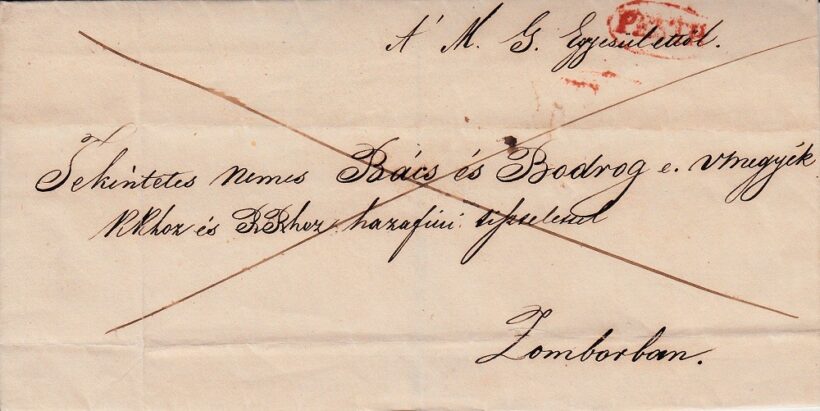 PESTH
A' M. G. Egyesülettöl.
Tekintetes nemes Bács és Bodrog e. vmegyék
KKhoz és RRhez hazafiúi tisztelettel
Zomborban.